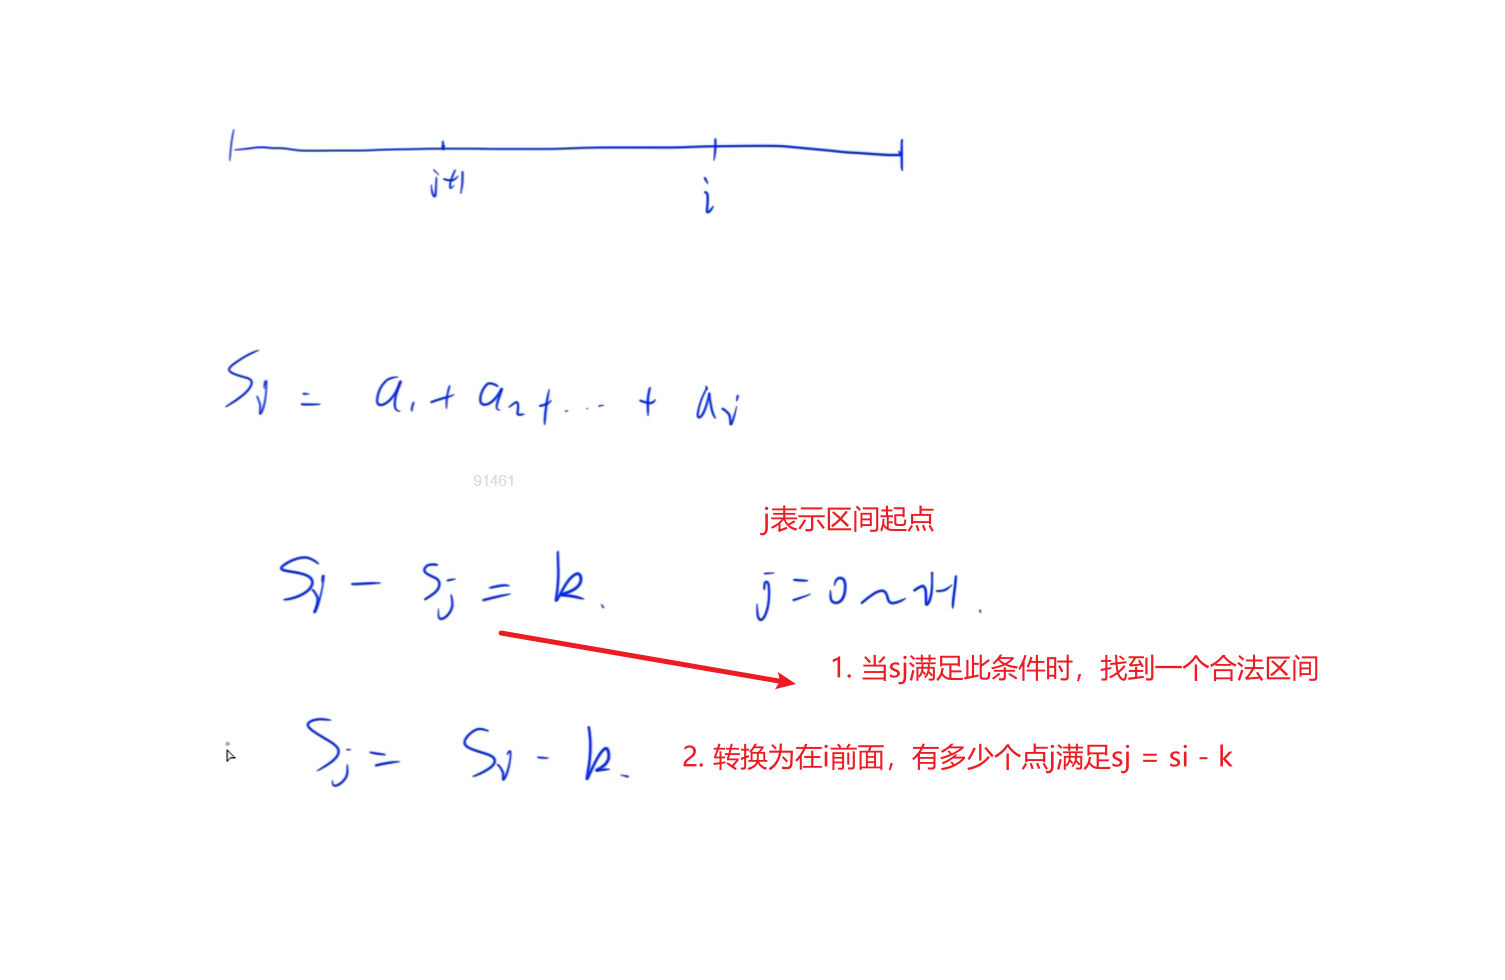 j+1
i
Si = a1 + a2 + ... + ai
91461
j表示区间起点
Si - Sj = k. j = 0 ~ i-1.
1. 当sj满足此条件时，找到一个合法区间
Sj = Si - k.
2. 转换为在i前面，有多少个点j满足sj = si - k